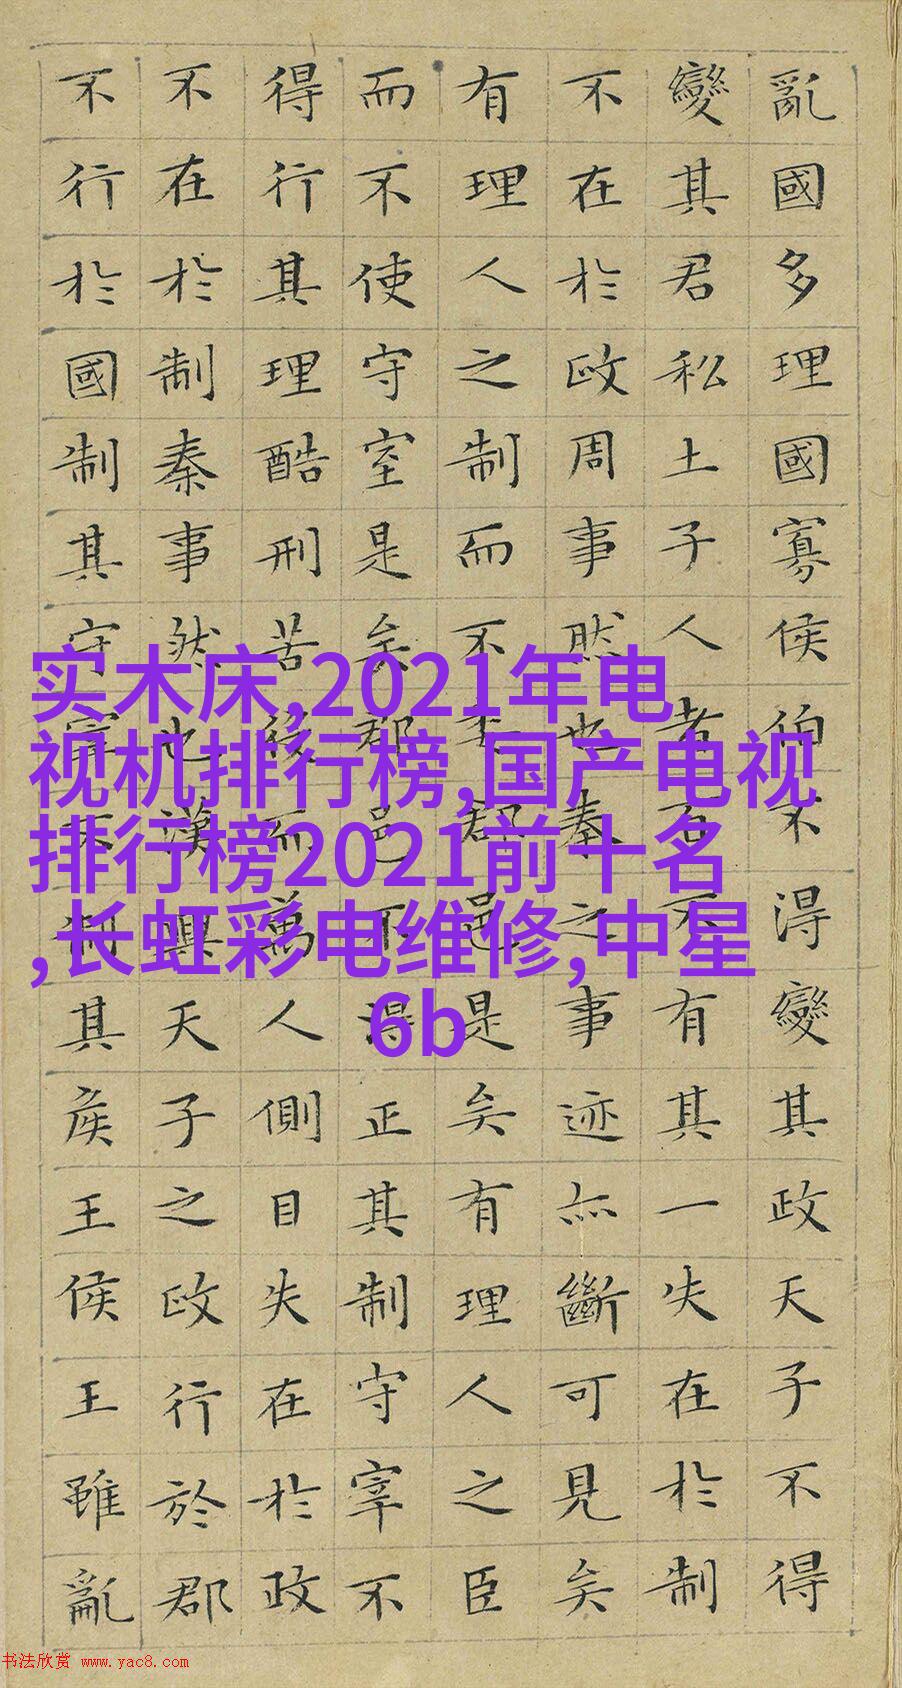 亂國多理國寡侯伯不得變其政天子不得
變其君私土子人者百不有其一失在於制
不在於政周事然也秦之事迹亦斷可見矣
有理人之制而不委郡邑是矣有理人之臣
而不使守宰是矣郡邑不得正其制守宰不
得行其理酷刑苦役而萬人側目失在於政
不在於制秦事然也漢興天子之政行於郡
不行於國制其守宰不制其侯王侯王雖亂
实木床,2021年电
视机排行榜,国产电视
排行榜2021前十名
,长虹彩电维修,中星
6b
书法欣赏 www.yac8.com